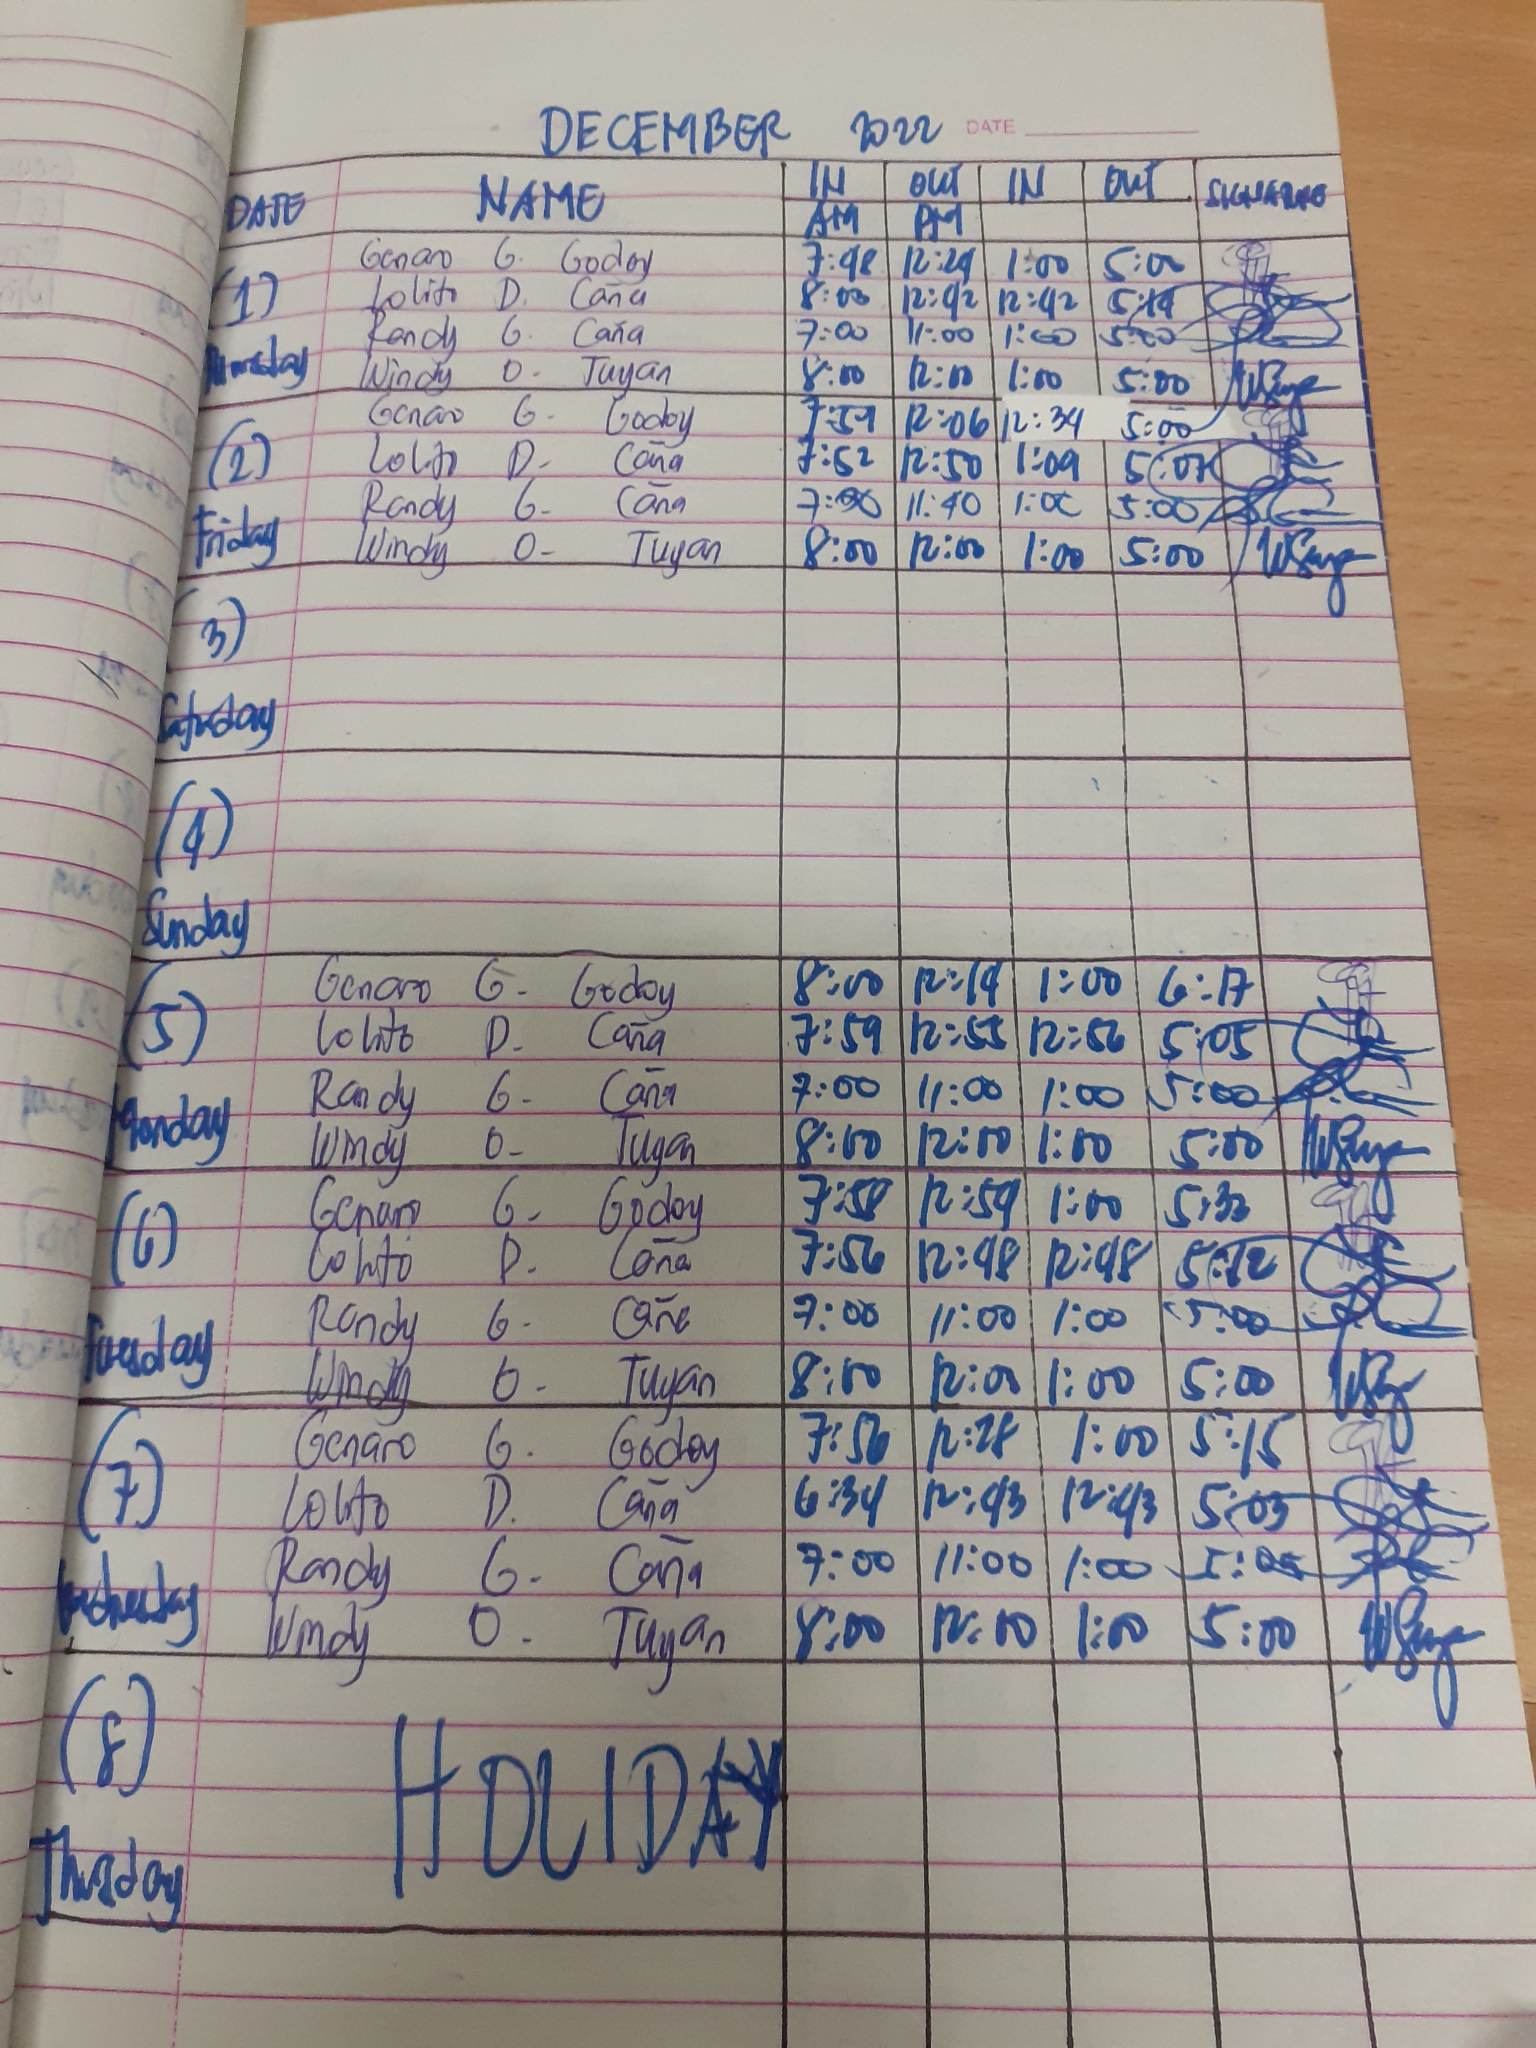 DECEMBER 2022 DATE
DATE NAME IN OUT IN OUT
AM PM
Genaro G. Godoy 7:48 12:29 1:00 5:00
(1) Lolito D. Caña 8:00 12:42 12:42 5:14
Randy G. Caña 7:00 11:00 1:00 5:00
Thursday Windy O. Tuyan 8:00 12:00 1:00 5:00
Genaro G. Godoy 7:59 12:06 12:34 5:00
(2) Lolito D. Caña 7:52 12:50 1:09 5:07
Randy G. Caña 11:40 1:00 5:00
Friday Windy O. Tuyan 8:00 12:00 1:00 5:00
(3)
Saturday
(4)
Sunday
(5) Genaro G. Godoy 8:00 12:14 1:00 6:17
Lolito D. Caña 7:59 12:55 12:56 5:05
Randy G. Caña 7:00 11:00 1:00 5:00
Monday Windy O. Tuyan 8:00 12:00 1:00 5:00
(6) Genaro G. Godoy 7:58 12:59 1:00 5:33
Lolito D. Caña 7:56 12:48 12:48 5:12
Randy G. Caña 7:00 11:00 1:00 5:00
Tuesday Windy O. Tuyan 8:00 12:00 1:00 5:00
(7) Genaro G. Godoy 7:56 12:28 1:00 5:15
Lolito D. Caña 6:34 12:43 12:43 5:03
Randy G. Caña 7:00 11:00 1:00
Wednesday Windy O. Tuyan 8:00 12:00 1:00 5:00
(8) HOLIDAY
Thursday